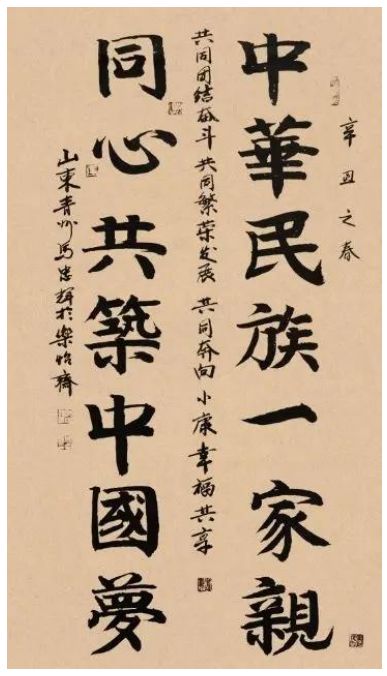 辛丑之春
中華民族一家親
共同团结奋斗 共同繁荣发展 共同奔向小康 幸福共享
同心共築中國夢
山東青州马忠輝於樂怡齋